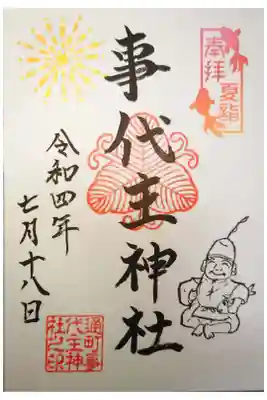 奉拝
夏詣
事代主神社
令和四年
七月十八日
通町事
代主神
社之印